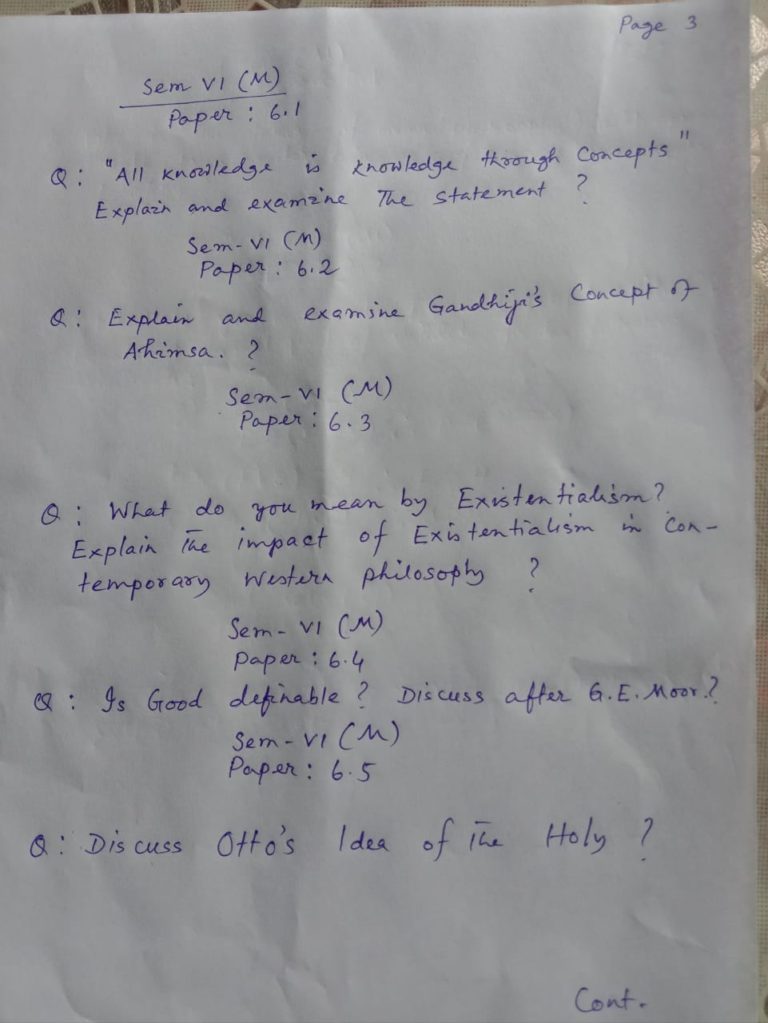 Page 3
Sem VI (M)
Paper : 6.1
Q : "All knowledge is knowledge through Concepts"
Explain and examine The statement ?
Sem- VI (M)
Paper : 6.2
Q : Explain and examine Gandhiji's Concept of
Ahimsa. ?
Sem- VI (M)
Paper : 6.3
Q : What do you mean by Existentialism?
Explain The impact of Existentialism in Con-
temporary Western philosophy ?
Sem- VI (M)
Paper : 6.4
Q : Is Good definable ? Discuss after G.E. Moor.?
Sem- VI (M)
Paper : 6.5
Q : Discuss Otto's Idea of The Holy ?
Cont.